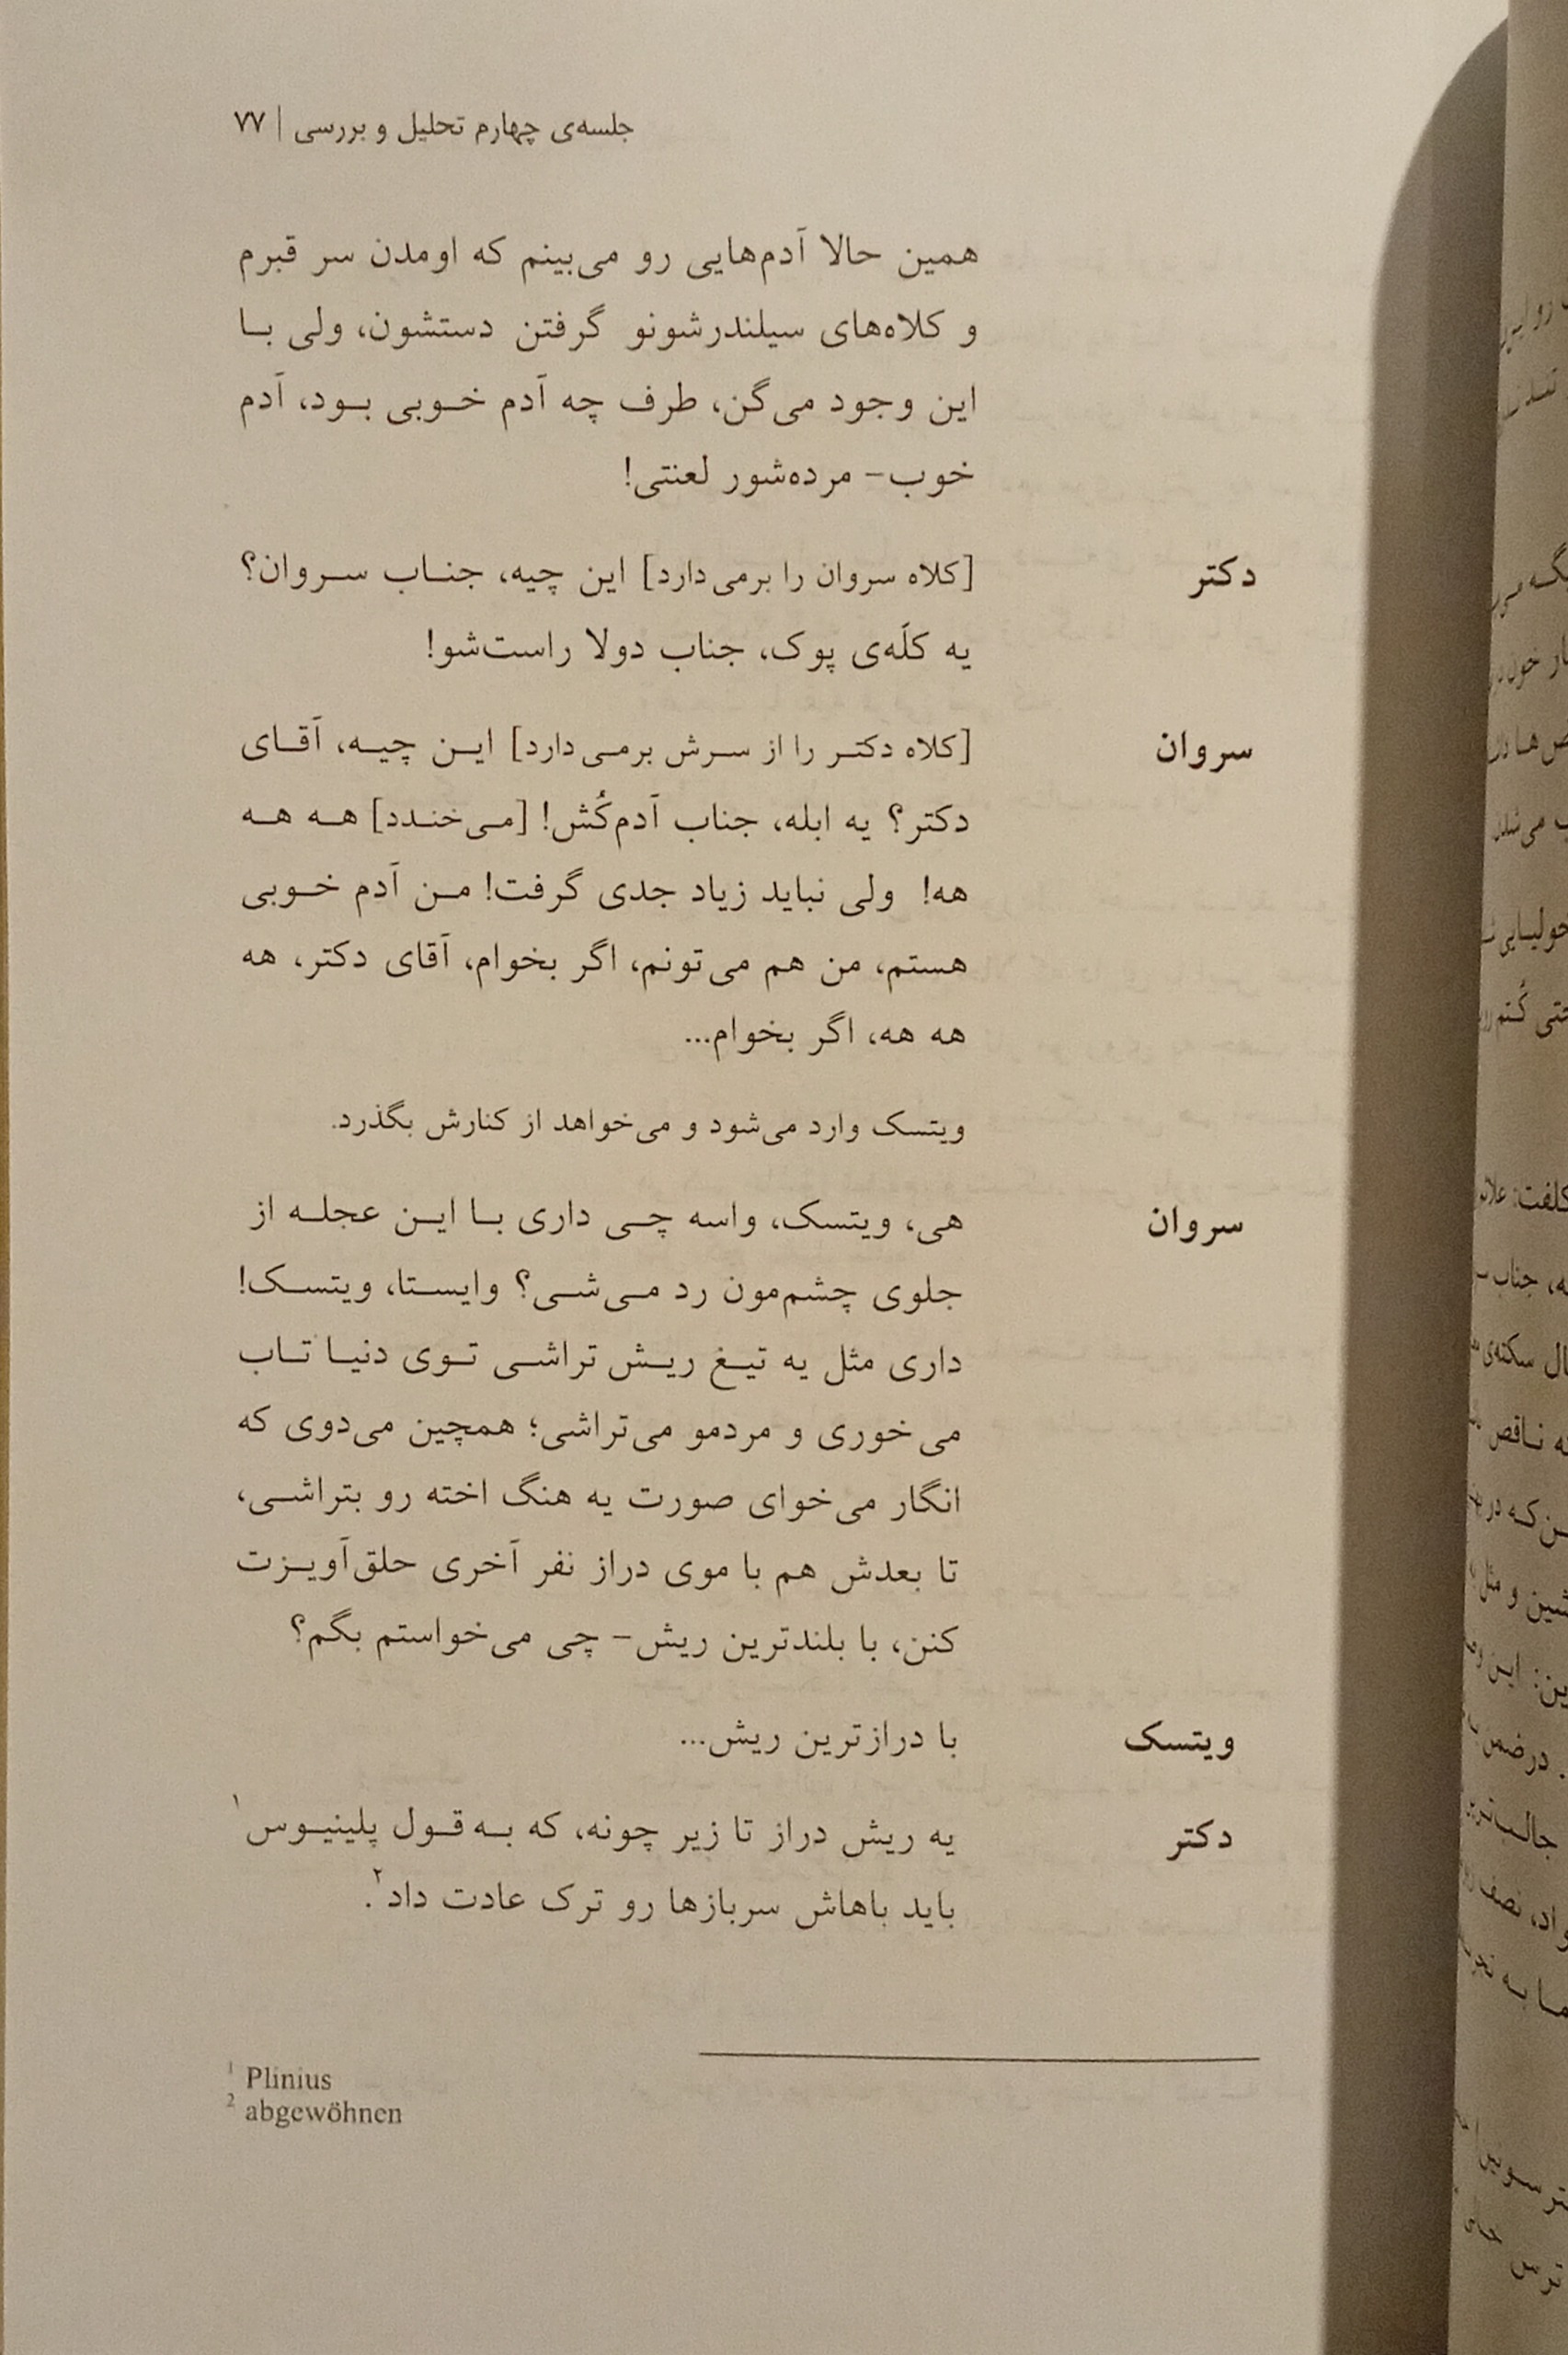 جلسه‌ی چهارم تحلیل و بررسی | ۷۷
همین حالا آدم‌هایی رو می‌بینم که اومدن سر قبرم
و کلاه‌های سیلندرشونو گرفتن دستشون، ولی با
این وجود می‌گن، طرف چه آدم خوبی بود، آدم
خوب- مرده‌شور لعنتی!
دکتر [کلاه سروان را برمی‌دارد] این چیه، جناب سروان؟
یه کلّه‌ی پوک، جناب دولا راست‌شو!
سروان [کلاه دکتر را از سرش برمی‌دارد] این چیه، آقای
دکتر؟ یه ابله، جناب آدم‌کُش! [می‌خندد] هه هه
هه! ولی نباید زیاد جدی گرفت! من آدم خوبی
هستم، من هم می‌تونم، اگر بخوام، آقای دکتر، هه
هه هه، اگر بخوام...
ویتسک وارد می‌شود و می‌خواهد از کنارش بگذرد.
سروان هی، ویتسک، واسه چی داری با این عجله از
جلوی چشم‌مون رد می‌شی؟ وایستا، ویتسک!
داری مثل یه تیغ ریش تراشی توی دنیا تاب
می‌خوری و مردمو می‌تراشی؛ همچین می‌دوی که
انگار می‌خوای صورت یه هنگ اخته رو بتراشی،
تا بعدش هم با موی دراز نفر آخری حلق‌آویزت
کنن، با بلندترین ریش- چی می‌خواستم بگم؟
ویتسک با درازترین ریش...
دکتر یه ریش دراز تا زیر چونه، که به‌قول پلینیوس۱
باید باهاش سربازها رو ترک عادت داد۲.
1 Plinius
2 abgewöhnen